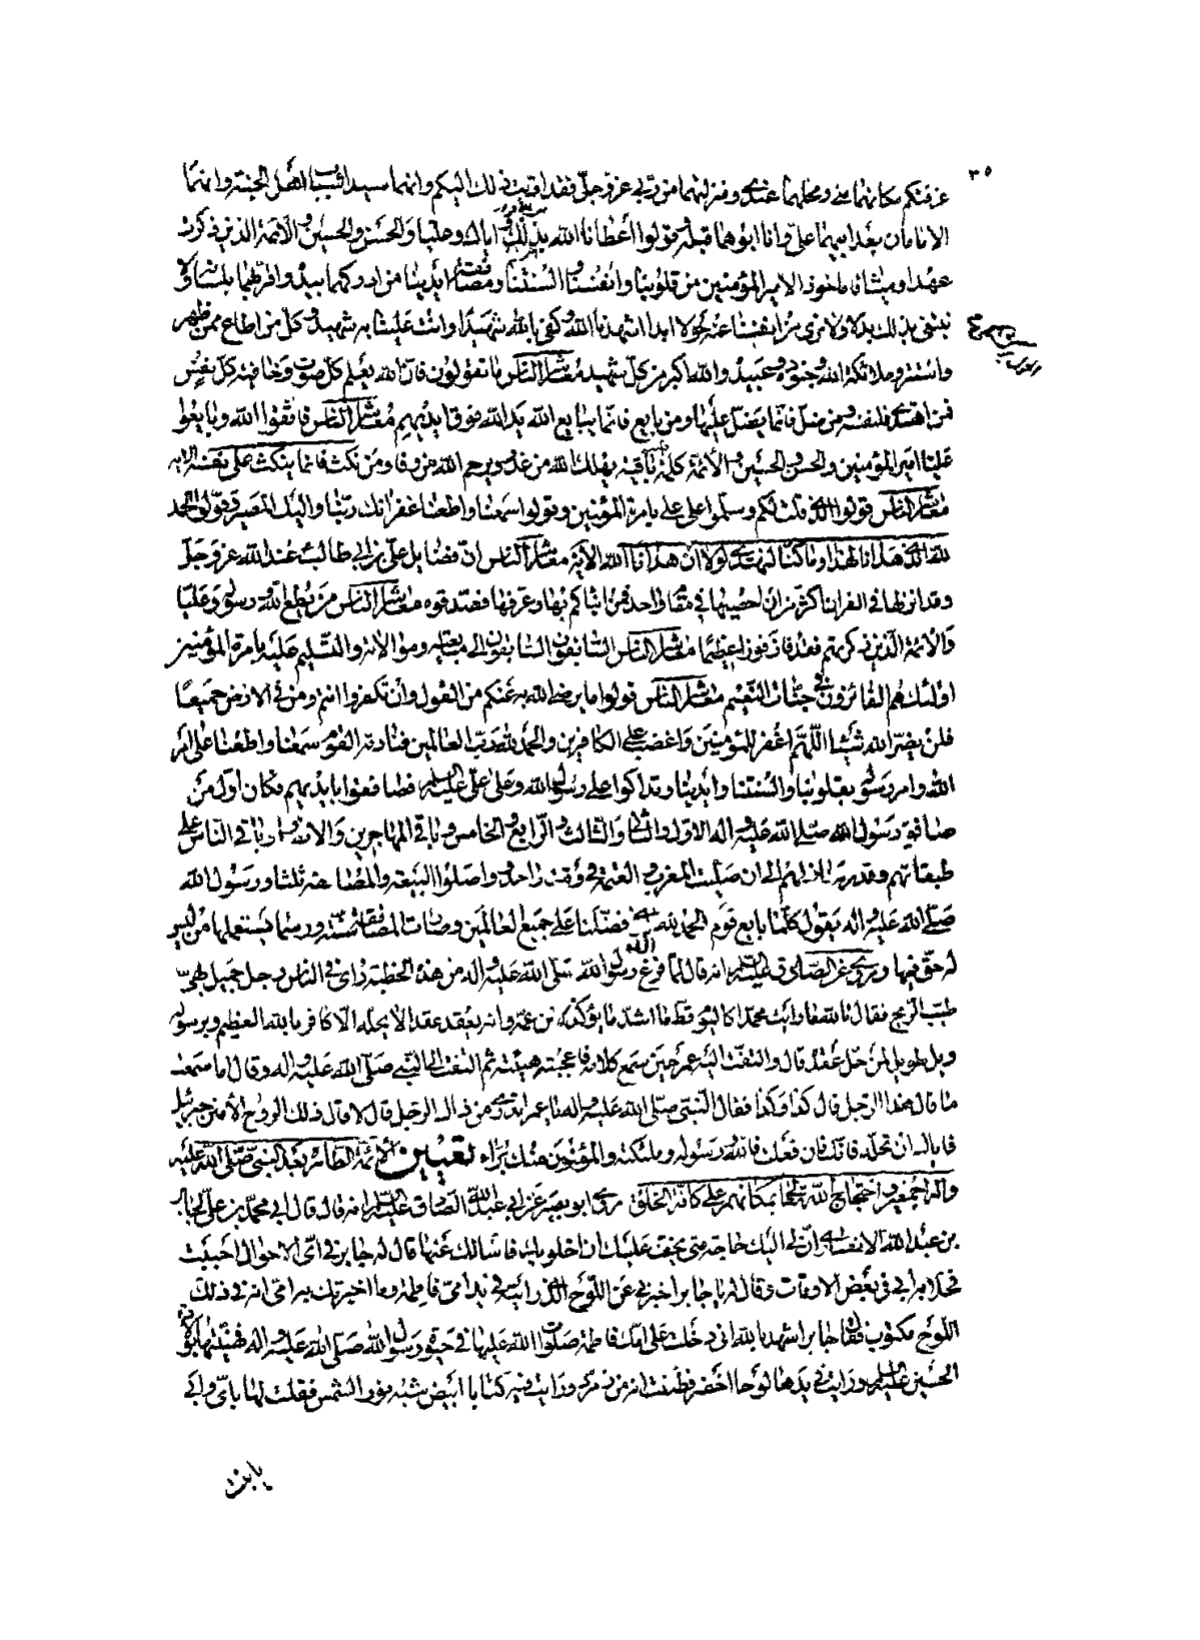 ٣٥
عرفتكم مكانهما مني ومحلهما عندي ومنزلتهما من ربي عز وجل فقد اديت ذلك اليكم وانهما سيدا شباب اهل الجنة وانهما
الامامان بعد ابيهما علي وانا ابوهما قبله قولوا اعطانا الله بذلك واياك وعليا والحسن والحسين والائمة الذين ذكرت
عهدا وميثاقا ماخوذا لامير المؤمنين من قلوبنا وانفسنا والسنتنا ومصافقة ايدينا من ادركهما بيده واقر بهما بلسانه ولا
نبتغي بذلك بدلا ولا نرى من انفسنا عنه حولا ابدا اشهدنا الله وكفى بالله شهيدا وانت علينا به شهيد وكل من اطاع ممن ظهر
واستتر وملائكة الله وجنوده وعبيده والله اكبر من كل شهيد معاشر الناس ما تقولون فان الله يعلم كل صوت وخافية كل نفس
فمن اهتدى فلنفسه ومن ضل فانما يضل عليها ومن بايع فانما يبايع الله يد الله فوق ايديهم معاشر الناس فاتقوا الله وبايعوا
عليا امير المؤمنين والحسن والحسين والائمة كلمة باقية يهلك الله من غدر ويرحم الله من وفا ومن نكث فانما ينكث على نفسه الاية
معاشر الناس قولوا الذي قلت لكم وسلموا على علي بامرة المؤمنين وقولوا سمعنا واطعنا غفرانك ربنا واليك المصير وقولوا الحمد
لله الذي هدانا لهذا وما كنا لنهتدي لولا ان هدانا الله الاية معاشر الناس ان فضايل علي بن ابي طالب عند الله عز وجل
وقد انزلها في القران اكثر من ان احصيها في مقام واحد فمن انباكم بها وعرفها فصدقوه معاشر الناس من يطع الله ورسوله وعليا
والائمة الذين ذكرتهم فقد فاز فوزا عظيما معاشر الناس السابقون السابقون الى مبايعته وموالاته والتسليم عليه بامرة المؤمنين
اولئك هم الفائزون في جنات النعيم معاشر الناس قولوا ما يرضي الله به عنكم من القول وان تكفروا انتم ومن في الارض جميعا
فلن يضر الله شيئا اللهم اغفر للمؤمنين واغضب على الكافرين والحمد لله رب العالمين فنادته القوم سمعنا واطعنا على امر
الله وامر رسوله بقلوبنا والسنتنا وايدينا وتداكوا على رسول الله وعلى علي عليه السلم فصافقوا بايديهم فكان اول من
صافق رسول الله صلى الله عليه واله الاول والثاني والثالث والرابع والخامس وباقي المهاجرين والانصار وباقي الناس على
طبقاتهم وقدر منازلهم الى ان صليت المغرب والعتمة في وقت واحد وواصلوا البيعة والمصافحة ثلثا ورسول الله
صلى الله عليه واله يقول كلما بايع قوم الحمد لله الذي فضلنا على جميع العالمين وصارت المصافقة سنة ورسما يستعملها من ليس
له حق فيها وروي عن الصادق عليه السلم انه قال لما فرغ رسول الله صلى الله عليه واله من هذه الخطبة راى في الناس رجل جميل بهي
طيب الريح فقال تالله ما رايت محمدا كاليوم قط ما اشد ما يؤكد لابن عمه وانه يعقد عقدا لا يحله الا كافر بالله العظيم وبرسوله
ويل طويل لمن حل عقده قال والتفت اليه عمر حين سمع كلامه فاعجبته هيئته ثم التفت الى النبي صلى الله عليه واله وقال اما سمعت
ما قال هذا الرجل قال كذا وكذا فقال النبي صلى الله عليه واله يا عمر اتدري من ذاك الرجل قال لا قال ذلك الروح الامين جبرئيل
فاياك ان تحله فانك فان فعلت فالله ورسوله وملئكته والمؤمنون منك براء تعيين الائمة الطاهرة بعد النبي صلى الله عليه
واله اجمعين واحتجاج الله تعالى بمكانهم على كافة الخلق روى ابو بصير عن ابي عبد الله الصادق عليه السلم انه قال قال ابي محمد بن علي لجابر
بن عبد الله الانصاري ان لي اليك حاجة متى يخف عليك ان اخلو بك فاسالك عنها قال له جابر في اي الاحوال احببت
فخلا به ابي في بعض الاوقات وقال له يا جابر اخبرني عن اللوح الذي رايته في يد امي فاطمة وما اخبرتك به امي انه في ذلك
اللوح مكتوب فقال جابر اشهد بالله اني دخلت على امك فاطمة صلوات الله عليها في حيوة رسول الله صلى الله عليه واله فهنيتها بولادة
الحسين عليه السلم ورايت في يدها لوحا اخضر فظننت انه من زمرد ورايت فيه كتابا ابيض شبه نور الشمس فقلت لها بابي وامي
يا بنت